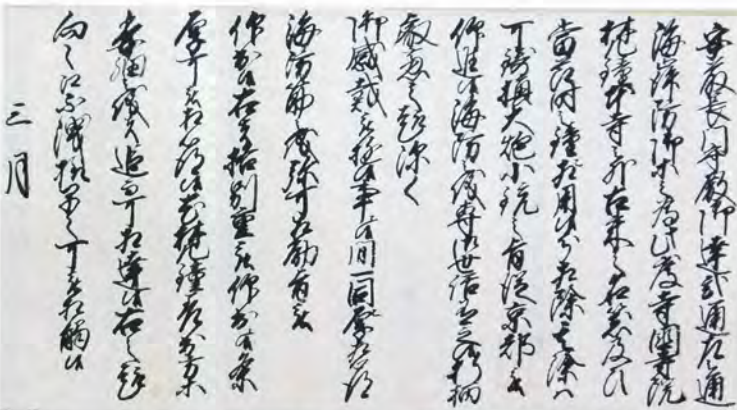 安藝長門守殿御達弐通左之通
海岸防御之為此度寺閣寺院
梵鐘本寺之外古来之名器及ひ
当節時之鐘ニ相用候分相除其余ハ
可鋳換大炮小銃之旨従京都被
仰進候海防之儀専御世話有之候折柄
叡慮之趣深く
御感戴被遊候事候間一同厚相心得
海防筋之儀弥可相励旨被
仰出候右者格別重き被仰出候条
厚可被相心得候尤梵鐘差出方等
委細之儀者追而可相達候右之趣
向々江不洩様早々可被相触候
三月